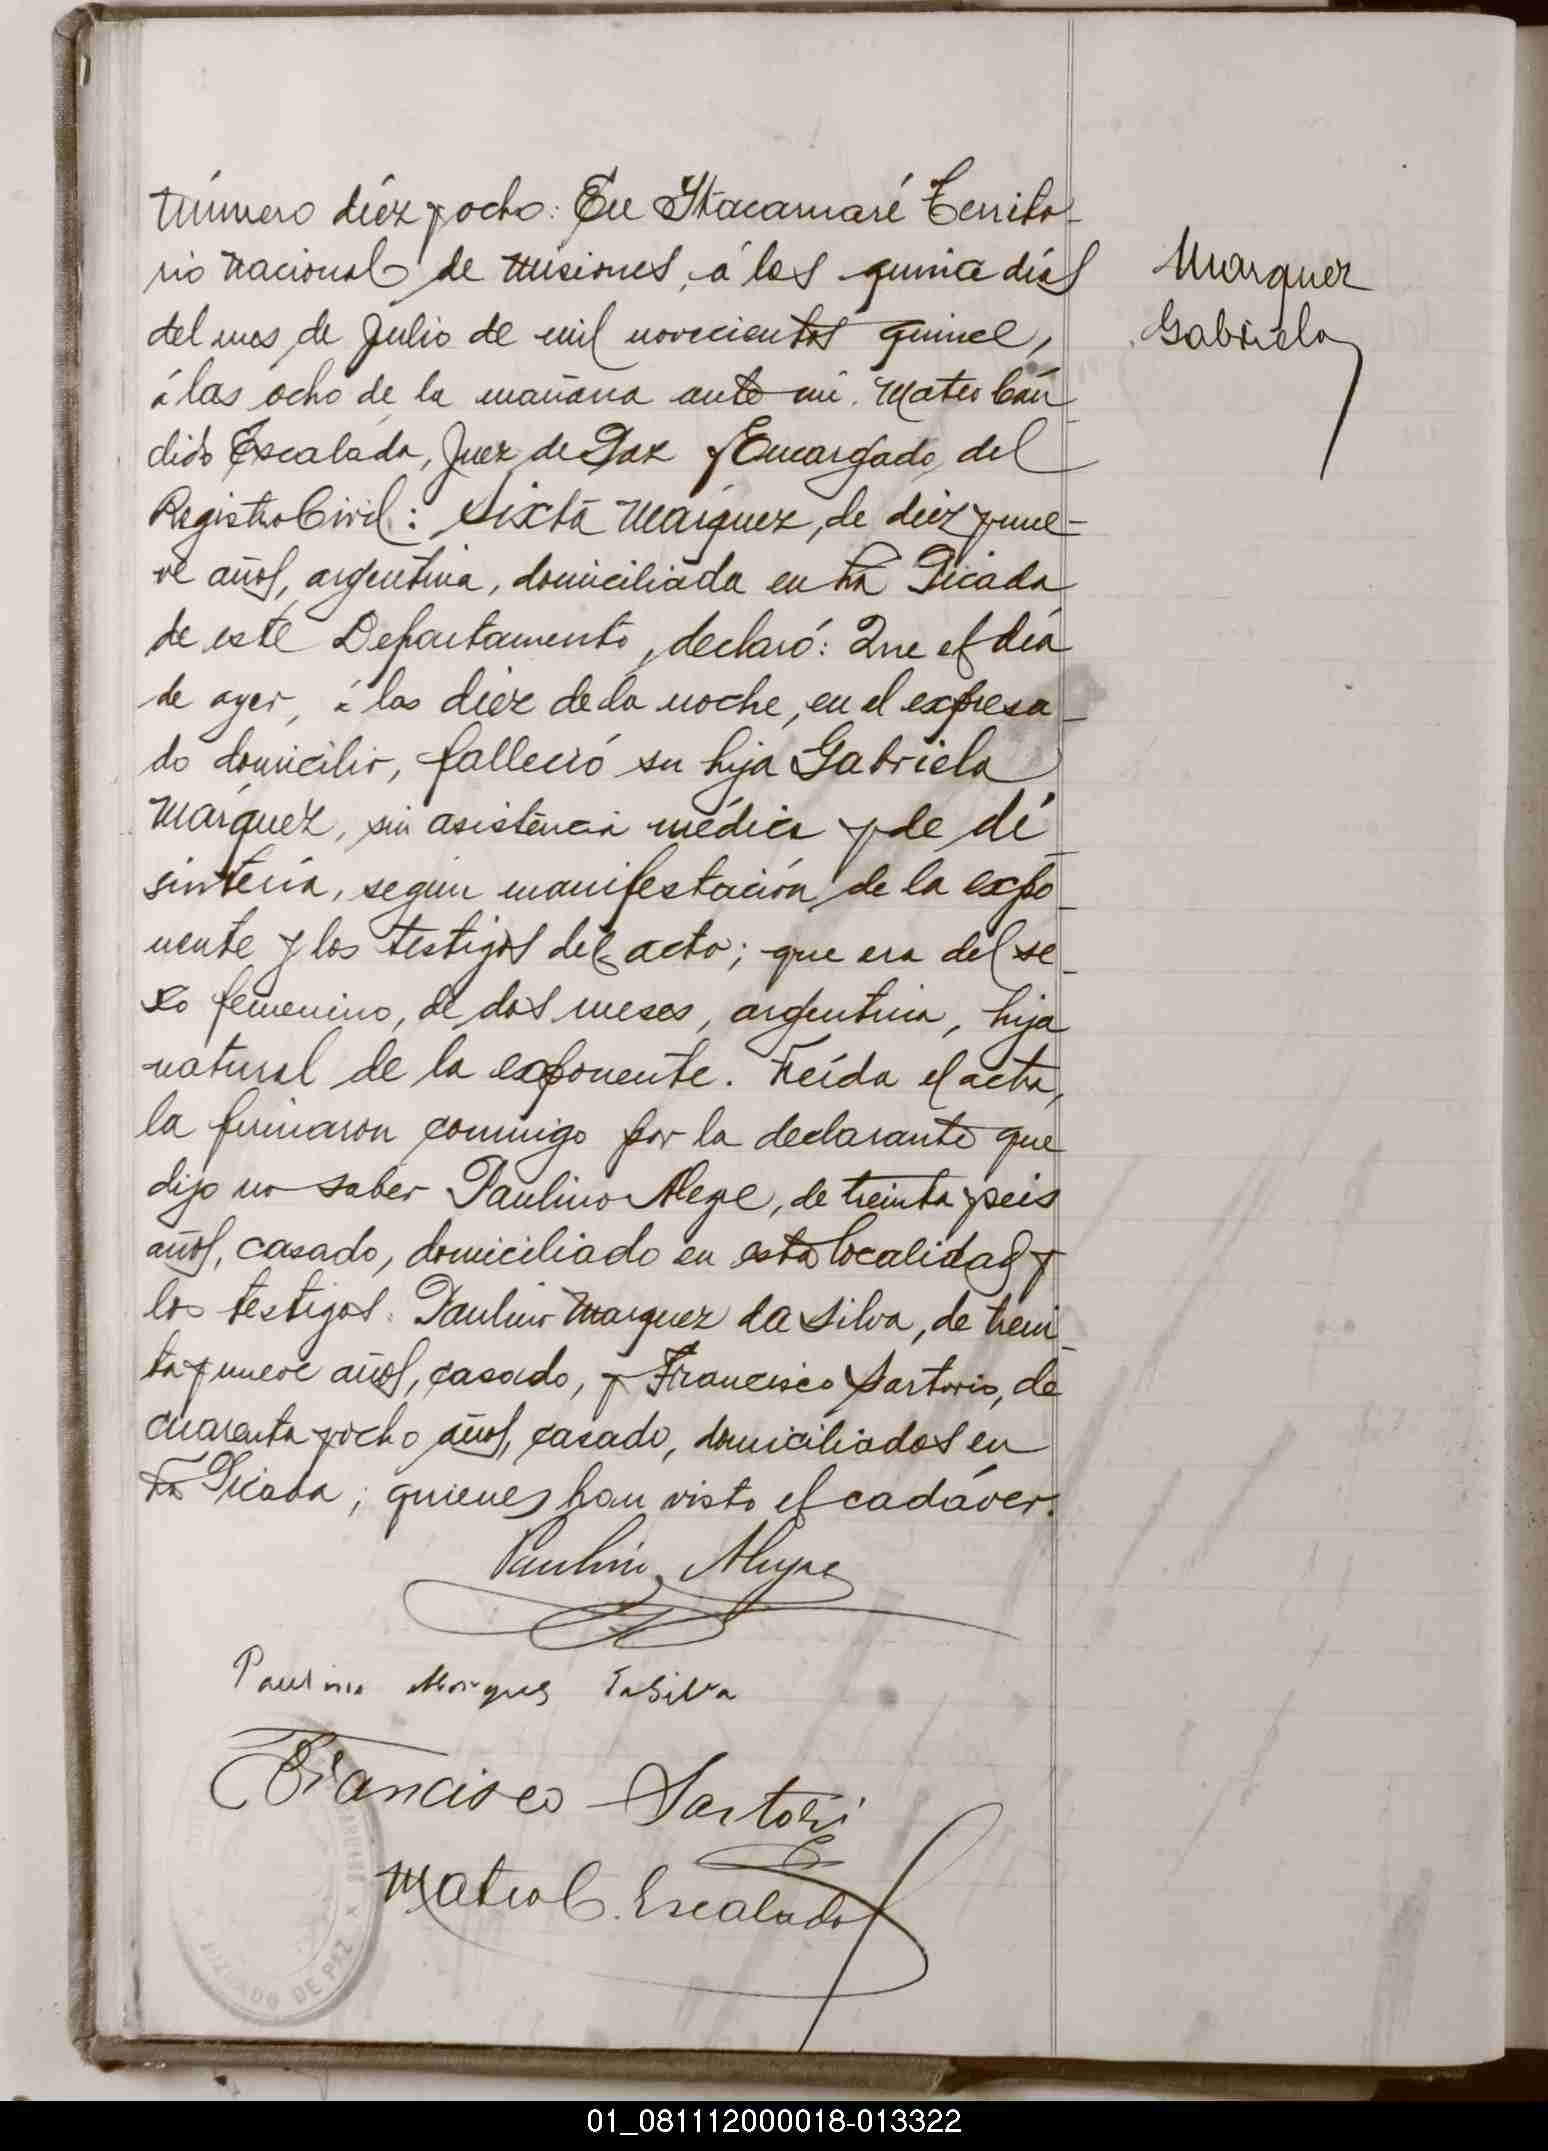 Número diéz y ocho: En Itacaruaré Territo-
rio Nacional de Misiones, á los quince días
del mes de Julio de mil novecientos quince,
á las ocho de la mañana ante mí, Mateo Cán
dido Escalada, Juez de Paz y Encargado del
Registro Civil: Sixta Márquez, de diez y nue-
ve años, argentina, domiciliada en La Picada
de este Departamento, declaró: Que el día
de ayer, á las diéz de la noche, en el expresa-
do domicilio, falleció su hija Gabriela
Márquez, sin asistencia médica y de di-
sintería, según manifestación de la expo-
nente y los testigos del acto; que era del se-
xo femenino, de dos meses, argentina, hija
natural de la exponente. Leída el acta,
la firmaron conmigo por la declarante que
dijo no saber Paulino Alegre, de treinta y seis
años, casado, domiciliado en esta localidad y
los testigos: Paulino Marquez da Silva, de trein-
ta y nueve años, casado, y Francisco Sartorio, de
cuarenta y ocho años, casado, domiciliados en
La Picada; quienes han visto el cadáver.
Marquez
Gabriela
Paulino Alegre
Paulino Marques DaSilva
Francisco Sartori
Mateo C. Escalada
JUZGADO DE PAZ
01_081112000018-013322